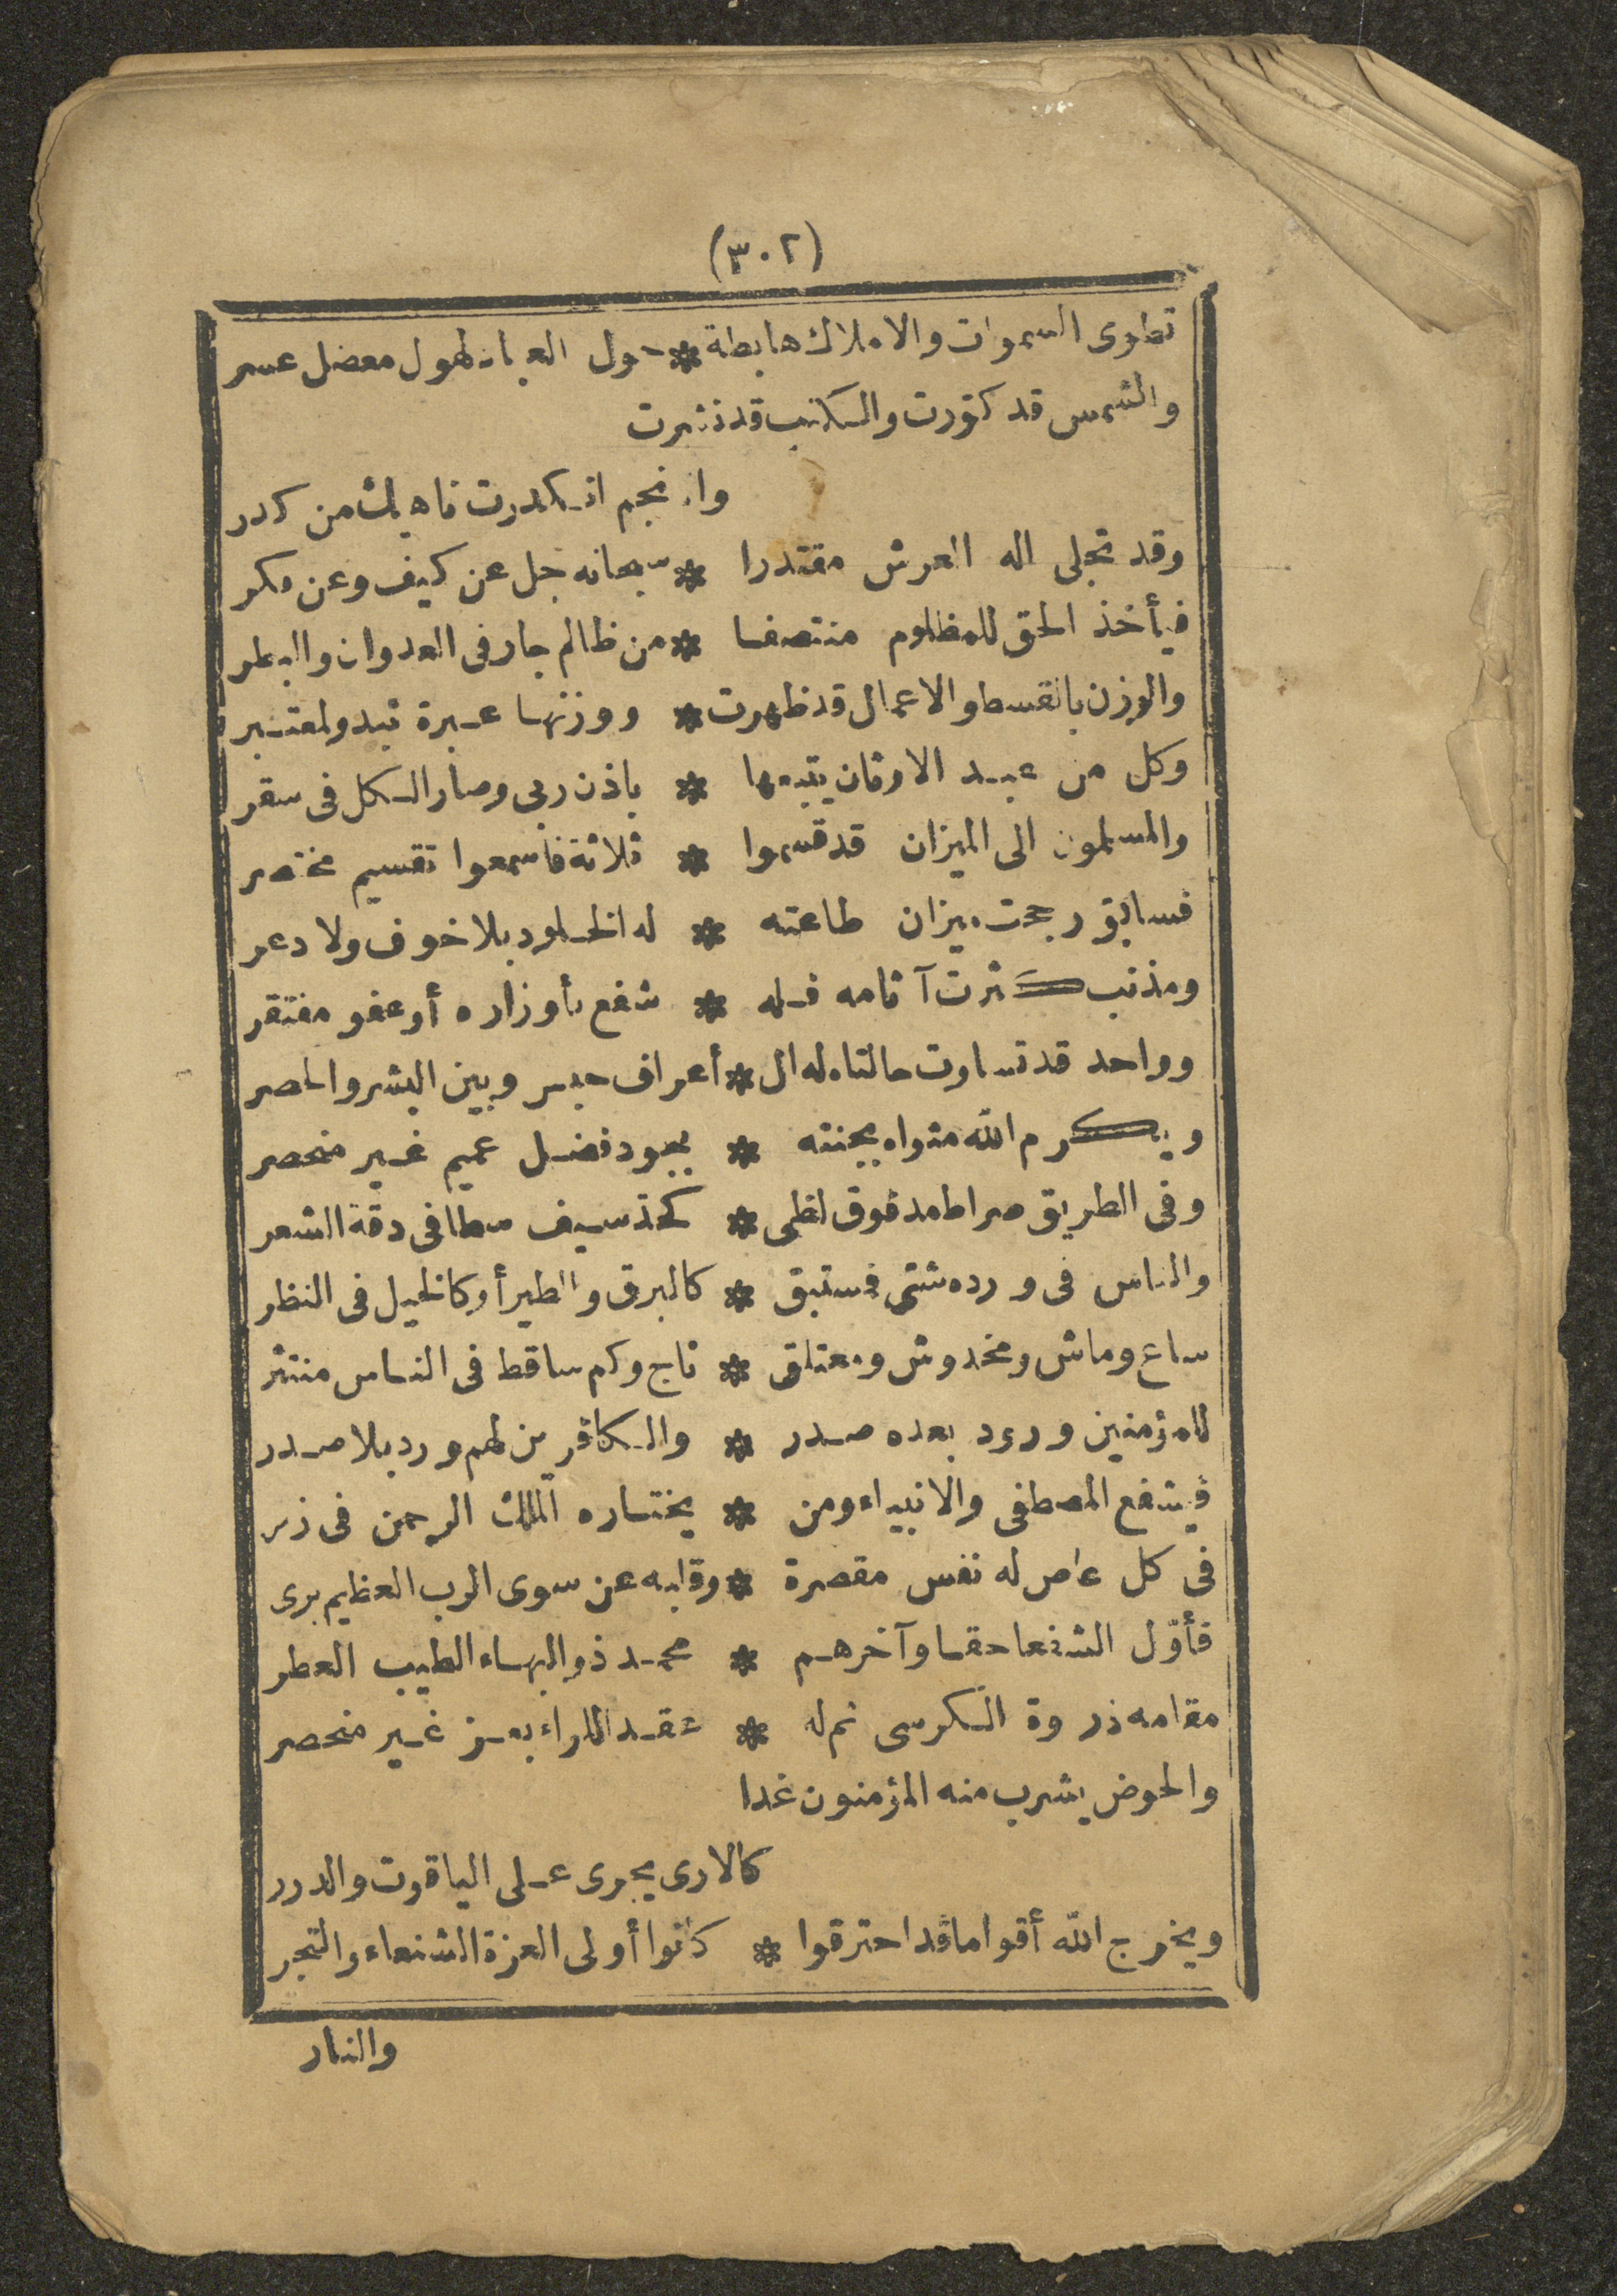 (٣٠٢)
تطوى السموات والاملاك هابطة * حول العباد لهول معضل عسر
والشمس قد كوّرت والكتب قد نشرت
وانجم انكدرت ناهيك من كدر
وقد تجلى اله العرش مقتدرا * سبحانه جل عن كيف وعن فكر
فيأخذ الحق للمظلوم منتصفا * من ظالم جار فى العدوان والبطر
والوزن بالقسط والاعمال قد ظهرت * ووزنها عبرة تبدو لمعتبر
وكل من عبد الاوثان يتبعها * باذن ربى وصار الكل فى سقر
والمسلمون الى الميزان قد قسموا * ثلاثة فاسمعوا تقسيم مختصر
فسابق رجحت ميزان طاعته * له الخلود بلا خوف ولا دعر
ومذنب كثرت آثامه فله * شفع بأوزاره أو عفو مفتقر
وواحد قد تساوت حالتاه له ال * أعراف حبس وبين البشر والحصر
ويكرم الله مثواه بجنته * بجود فضل عميم غير منحصر
وفى الطريق صراط مد فوق لظى * كحدّ سيف سطا فى دقة الشعر
والناس فى ورده شتى فستبق * كالبرق والطير أو كالخيل فى النظر
ساع وماش ومخدوش ومعتلق * ناج وكم ساقط فى الناس منتثر
للمؤمنين ورود بعده صدر * والكافرين لهم ورد بلا صدر
فيشفع المصطفى والانبياء ومن * يختاره الملك الرحمن فى زمر
فى كل عاص له نفس مقصرة * وقلبه عن سوى الرب العظيم برى
فأوّل الشفعا حقا وآخرهم * محمد ذو البهاء الطيب العطر
مقامه ذروة الكرسى ثم له * عقد اللواء بعز غير منحصر
والحوض يشرب منه المؤمنون غدا
كالارى يجرى على الياقوت والدرر
ويخرج الله أقواما قد احترقوا * كانوا أولى العزة الشنعاء والنجر
والنار